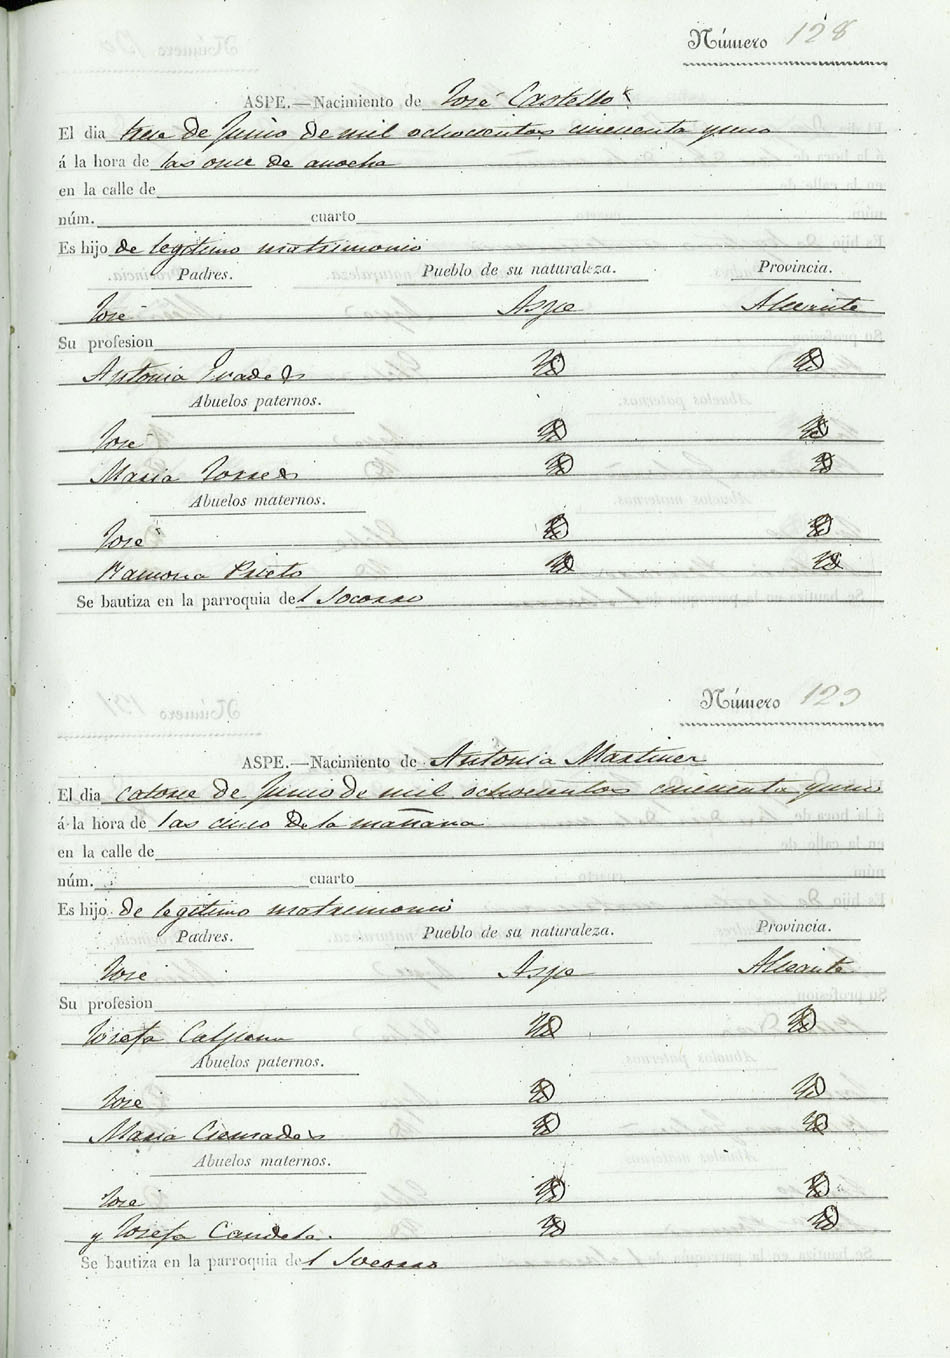 Número 128
ASPE.—Nacimiento de José Castelló
El dia trece de Junio de mil ochocientos cincuenta y uno
á la hora de las once de anoche
en la calle de
núm. cuarto
Es hijo de legitimo matrimonio
Padres. Pueblo de su naturaleza. Provincia.
José Aspe Alicante
Su profesion
Antonia Id Id
Abuelos paternos.
José Id Id
Maria Torres Id Id
Abuelos maternos.
José Id Id
Ramona Prieto Id Id
Se bautiza en la parroquia del Socorro
Número 129
ASPE.—Nacimiento de Antonia Martinez
El dia catorce de Junio de mil ochocientos cincuenta y uno
á la hora de las cinco de la mañana
en la calle de
núm. cuarto
Es hijo de legitimo matrimonio
Padres. Pueblo de su naturaleza. Provincia.
José Aspe Alicante
Su profesion
Josefa Calpena Id Id
Abuelos paternos.
José Id Id
Maria Id Id
Abuelos maternos.
José Id Id
y Josefa Candela. Id Id
Se bautiza en la parroquia del Socorro